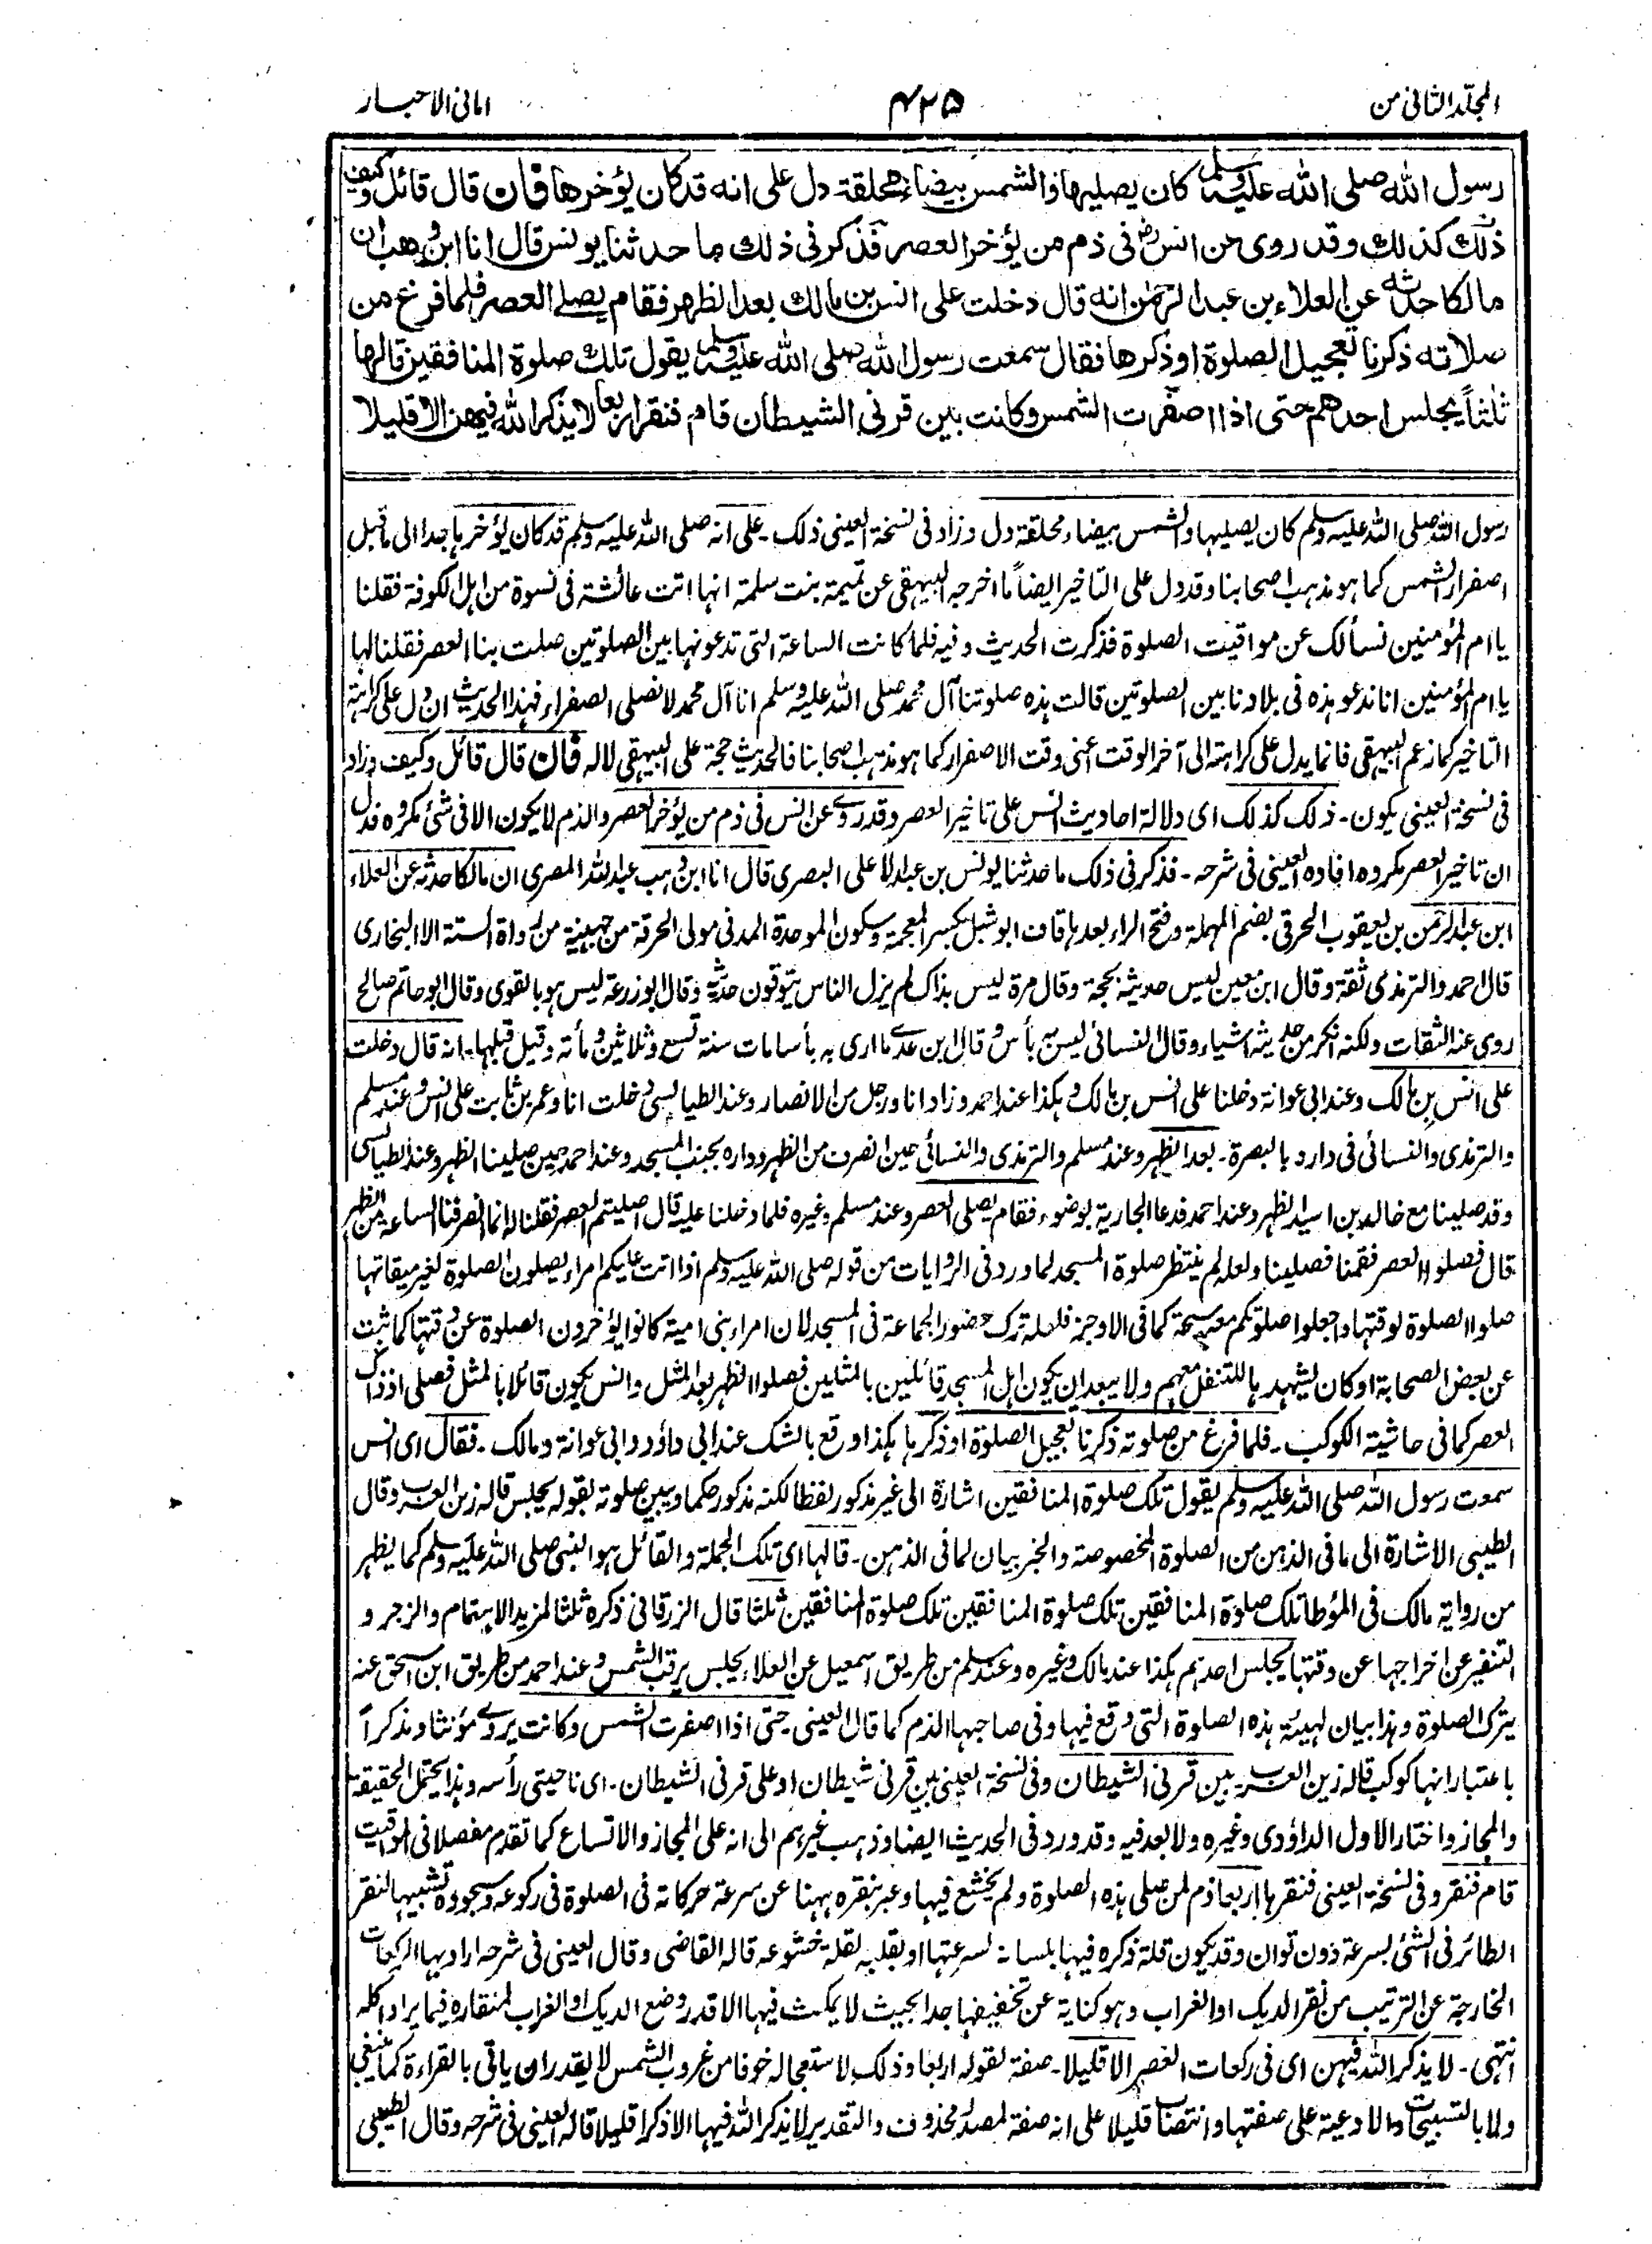 المجلد الثانی من
۴۲۵
امانی الاحبار
رسول الله صلی الله علیہ وسلم کان یصلیہا والشمس بیضاء محلقة دل علی انه قد کان یؤخرها فان قال قائل وکیف
ذلك كذلك وقد روی عن انس رض فی ذم من یؤخر العصر فذکر فی ذلك ما حدثنا یونس قال انا ابن وهب ان
مالکا حدثه عن العلاء بن عبد الرحمٰن انه قال دخلت علی انس بن مالك بعد الظهر فقام یصلے العصر فلما فرغ من
صلاته ذکرنا تعجیل الصلوة او ذکرها فقال سمعت رسول الله صلی الله علیہ وسلم یقول تلك صلوة المنافقین قالها
ثلثاً یجلس احدهم حتی اذا اصفرت الشمس وکانت بین قرنی الشیطان قام فنقر اربعا لا یذکر الله فیهن الا قلیلا
رسول اللہ صلی اللہ علیہ وسلم کان یصلیہا والشمس بیضاء محلقة دل وزاد فی نسخة العینی ذلک ۔ علی انہ صلی اللہ علیہ وسلم قد کان یؤخرہا جدا الی ما قبل
اصفرار الشمس کما ہو مذہب اصحابنا وقد دل علی التاخیر ایضاً ما اخرجہ البیہقی عن تمیمة بنت سلمة انہا اتت عائشة فی نسوة من اہل الکوفة فقلنا
یا ام المؤمنین نسألک عن مواقیت الصلوة فذکرت الحدیث وفیہ فلما کانت الساعة التی تدعونہا بین الصلوتین صلت بنا العصر فقلنا لہا
یا ام المؤمنین انا ندعو ہذہ فی بلادنا بین الصلوتین قالت ہذہ صلوتنا آل محمد صلی اللہ علیہ وسلم انا آل محمد لا نصلی الصفراء فہذا الحدیث ان دل علی کراہة
التاخیر کما زعم البیہقی فانما یدل علی کراہتہ الی آخر الوقت اعنی وقت الاصفرار کما ہو مذہب اصحابنا فالحدیث حجة علی البیہقی لا لہ فان قال قائل وکیف وزاد
فی نسخة العینی یکون ۔ ذلک کذلک ای دلالة احادیث انس علی تاخیر العصر وقد روے عن انس فی ذم من یؤخر العصر والذم لا یکون الا فی شئ مکروہ فدل
ان تاخیر العصر مکروہ افادہ العینی فی شرحہ ۔ فذکر فی ذلک ما حدثنا یونس بن عبد الاعلی البصری قال انا ابن وہب عبد اللہ المصری ان مالکا حدثہ عن العلاء
ابن عبد الرحمن بن یعقوب الحرقی بضم المہملة وفتح الراء بعدہا قاف ابو شبل بکسر المعجمة وسکون الموحدة المدنی مولی الحرقة من جہینة من رواة الستة الا البخاری
قال احمد والترمذی ثقة وقال ابن معین لیس حدیثہ بحجة وقال مرة لیس بذاک لم یزل الناس یتوقون حدیثہ وقال ابو زرعة لیس ہو بالقوی وقال ابو حاتم صالح
روی عنہ الثقات ولکنہ انکر من حدیثہ اشیاء وقال النسائی لیس بہ بأس وقال ابن عدے ما اری بہ بأسا مات سنة تسع وثلاثین ومأتہ وقیل قبلہا ۔ انہ قال دخلت
علی انس بن مالک وعند ابی عوانة دخلنا علی انس بن مالک وہکذا عند احمد وزاد انا ورجل من الانصار وعند الطیالسی دخلت انا وعمر بن ثابت علی انس وعند مسلم
والترمذی والنسائی فی دارہ بالبصرة ۔ بعد الظہر وعند مسلم والترمذی والنسائی حین انصرف من الظہر ودارہ بجنب المسجد وعند احمد حین صلینا الظہر وعند الطیالسی
وقد صلینا مع خالد بن اسید الظہر وعند احمد فدعا الجاریة بوضوء فقام یصلی العصر وعند مسلم وغیرہ فلما دخلنا علیہ قال اصلیتم العصر فقلنا لہ انما انصرفنا الساعة من الظہر
قال فصلوا العصر فقمنا فصلینا ولعلہ لم ینتظر صلوة المسجد لما ورد فی الروایات من قولہ صلی اللہ علیہ وسلم اذا اتت علیکم امراء یصلون الصلوة لغیر میقاتہا
صلوا الصلوة لوقتہا واجعلوا صلوتکم معہم سبحة کما فی الاوجز فلعلہ ترک حضور الجماعة فی المسجد لان امراء بنی امیة کانوا یؤخرون الصلوة عن وقتہا کما ثبت
عن بعض الصحابة او کان لیشہدہا للتنفل معہم ولا یبعد ان یکون اہل المسجد قائلین بالمثلین فصلوا الظہر بعد المثل وانس یکون قائلا بالمثل فصلی اذ ذاک
العصر کما فی حاشیة الکوکب ۔ فلما فرغ من صلوتہ ذکرنا تعجیل الصلوة او ذکرہا ہکذا وقع بالشک عند ابی داؤد وابی عوانة ومالک ۔ فقال ای انس
سمعت رسول اللہ صلی اللہ علیہ وسلم یقول تلک صلوة المنافقین اشارة الی غیر مذکور لفظا لکنہ مذکور حکما وبین صلوتہ بقولہ یجلس قالہ زین العرب وقال
الطیبی الاشارة الی ما فی الذہن من الصلوة المخصوصة والخبر بیان لما فی الذہن ۔ قالہا ای تلک الجملة والقائل ہو النبی صلی اللہ علیہ وسلم کما یظہر
من روایة مالک فی المؤطا تلک صلوة المنافقین تلک صلوة المنافقین تلک صلوة المنافقین ثلثا قال الزرقانی ذکرہ ثلثا لمزید الاہتمام والزجر و
التنفیر عن اخراجہا عن وقتہا یجلس احدہم ہکذا عند مالک وغیرہ وعند مسلم من طریق اسمعیل عن العلاء یجلس یرقب الشمس وعند احمد من طریق ابن اسحق عنہ
یترک الصلوة وہذا بیان لہیئة ہذہ الصلوة التی وقع فیہا وفی صاحبہا الذم کما قال العینی ۔ حتی اذا اصفرت الشمس وکانت یروے مؤنثا ومذکراً
باعتبار انہا کوکب قالہ زین العرب ۔ بین قرنی الشیطان وفی نسخة العینی بین قرنی شیطان او علی قرنی الشیطان ۔ ای ناحیتی رأسہ وہذا یحتمل الحقیقة
والمجاز واختار الاول الداؤدی وغیرہ ولا بعد فیہ وقد ورد فی الحدیث ایضا وذہب غیرہم الی انہ علی المجاز والاتساع کما تقدم مفصلا فی المواقیت
قام فنقر وفی نسخة العینی فنقرہا اربعا ذم لمن صلی ہذہ الصلوة ولم یخشع فیہا وعبر بنقرہ ہہنا عن سرعة حرکاتہ فی الصلوة فی رکوعہ وسجودہ تشبیہا لنقر
الطائر فی الشئ بسرعة دون توان وقد یکون قلة ذکرہ فیہا بلسانہ لسرعتہا او بقلبہ لقلة خشوعہ قالہ القاضی وقال العینی فی شرحہ اراد بہا الرکعات
الخارجة عن الترتیب من نقر الدیک او الغراب وہو کنایة عن تخفیفہا جدا بحیث لا یمکث فیہا الا قدر وضع الدیک او الغراب لمنقارہ فیما یراد اکلہ
انتہی ۔ لا یذکر اللہ فیہن ای فی رکعات العصر الا قلیلا ۔ صفة لقولہ اربعا وذلک لاستعجالہ خوفا من غروب الشمس لا یقدر ان یاتی بالقراءة کما ینبغی
ولا بالتسبیحات والادعیة علی صفتہا وانتصاب قلیلا علی انہ صفة لمصدر محذوف والتقدیر لا یذکر اللہ فیہا الا ذکرا قلیلا قالہ العینی فی شرحہ وقال الطیبی